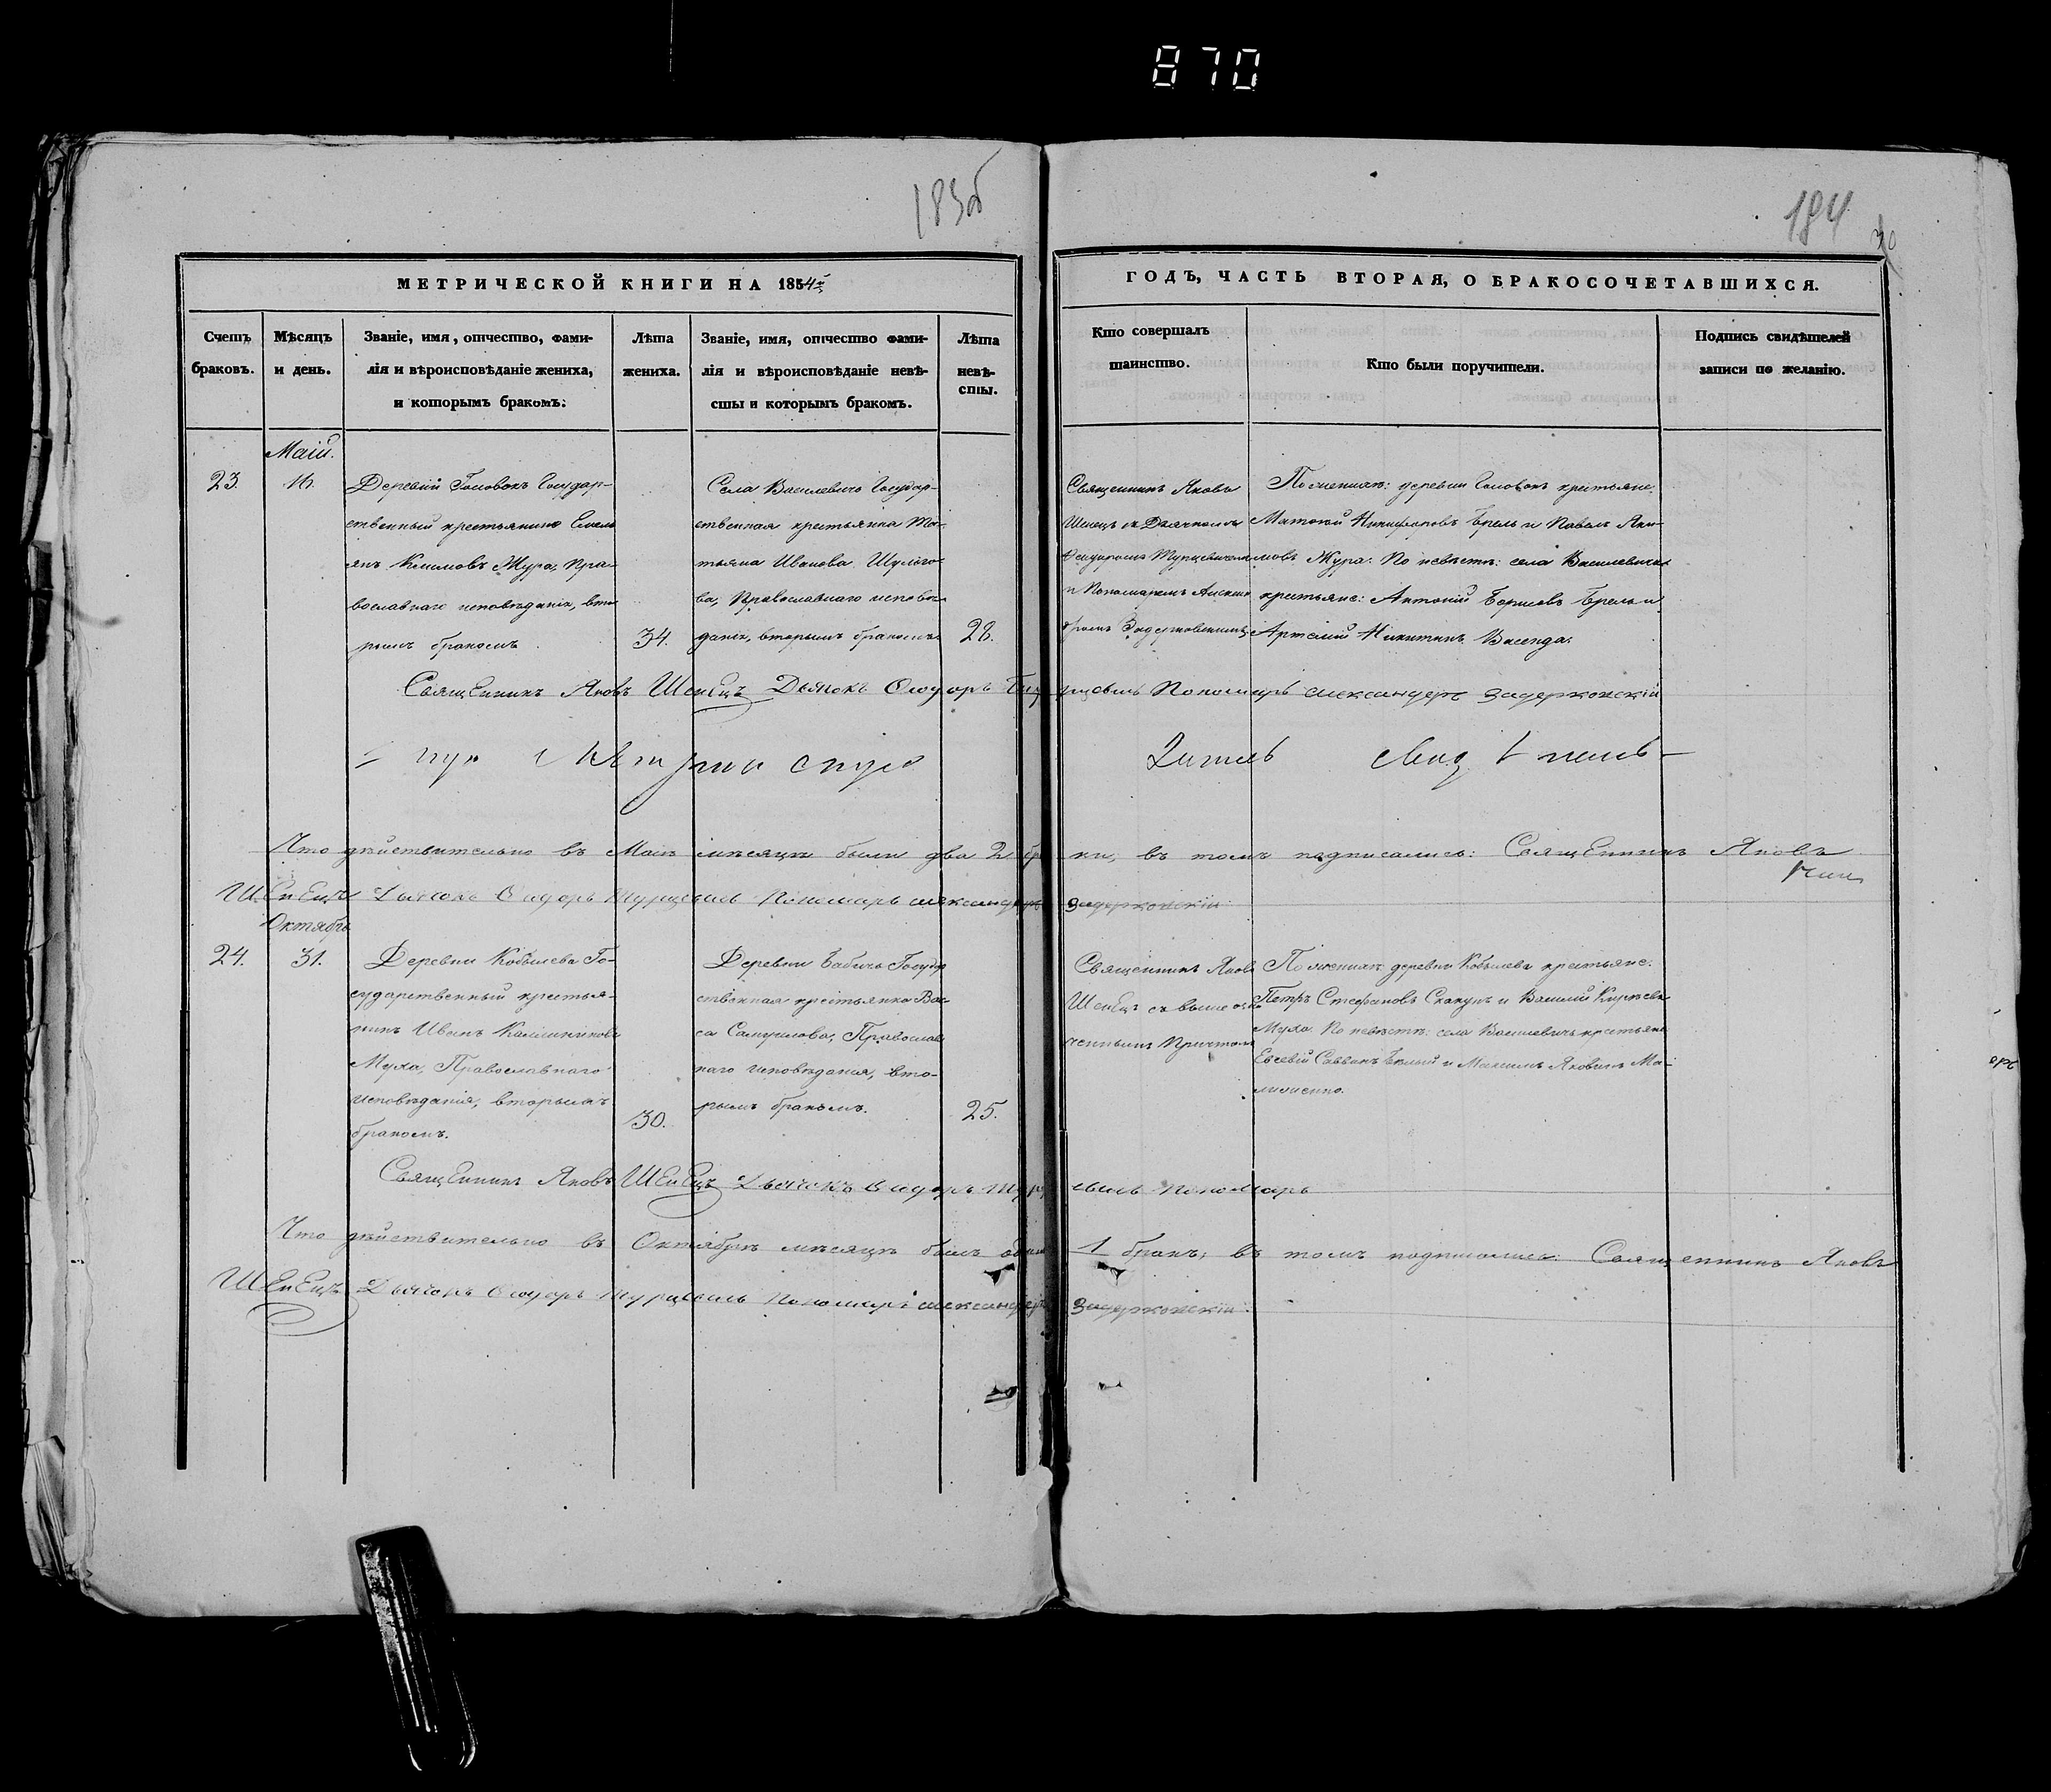 870
183об
184
30
МЕТРИЧЕСКОЙ КНИГИ НА 1854й
ГОДЪ, ЧАСТЬ ВТОРАЯ, О БРАКОСОЧЕТАВШИХСЯ.
Счетъ браковъ.
Мѣсяцъ и день.
Званіе, имя, отчество, фами-
лія и вѣроисповѣданіе жениха,
и которымъ бракомъ.
Лѣта жениха.
Званіе, имя, отчество фами-
лія и вѣроисповѣданіе невѣ-
сты и которымъ бракомъ.
Лѣта
невѣ-
сты.
Кто совершалъ
таинство.
Кто были поручители.
Подпись свидѣтелей
записи по желанію.
Маій.
23.
16.
Деревни Головокъ Государ-
ственный крестьянинъ Емель
янъ Климовъ Жура, Пра-
вославнаго исповѣданія, вто
рымъ бракомъ
34.
Села Василевичъ Государ-
ственная крестьянка Та-
тьяна Иванова Шулого-
ва, Православнаго исповѣ-
данія, вторымъ бракомъ
28.
Священникъ Яковъ
Шенецъ съ Дьячкомъ
Ѳеодоромъ Турцевичемъ
и Пономаремъ Алексан
дромъ Задерковскимъ
По женихѣ: деревни Головокъ крестьяне:
Матѳей Никифоровъ Брель и Павелъ Яки-
мовъ Жура. По невѣстѣ: села Василевичъ
крестьяне: Антоній Борисовъ Брель и
Артемій Никитинъ
Священникъ Яковъ Шенецъ Дьячокъ Ѳеодоръ Турцевичь Пономарь Александръ Задерковскій
Что дѣйствительно въ Маіѣ мѣсяцѣ были два 2 браки, въ томъ подписались: Священникъ Яковъ
Шенецъ Дьячокъ Ѳеодоръ Турцевичь Пономарь Александръ Задерковскій
Октябрь
24.
31.
Деревни Кобылева Го-
сударственный крестья-
нинъ Иванъ Калинниковъ
Муха, Православнаго
исповѣданія, вторымъ
бракомъ.
30.
Деревни Бабичъ Государ
ственная крестьянка Вас
са Самуилова, Православ
наго исповѣданія, вто-
рымъ бракомъ.
25.
Священникъ Яковъ
Шенецъ съ выше озна
ченнымъ Причтомъ
По женихѣ: деревни Кобылева крестьяне:
Петръ Стефановъ Скакунъ и Василій Кирѣевъ
Муха. По невѣстѣ: села Василевичъ крестьяне
Евсевій Саввинъ Бѣлый и Максимъ Яковлевъ
Священникъ Яковъ Шенецъ Дьячокъ Ѳеодоръ Турцевичь Пономарь
Что дѣйствительно въ Октябрѣ мѣсяцѣ былъ одинъ 1 бракъ; въ томъ подписались: Священникъ Яковъ
Шенецъ Дьячокъ Ѳеодоръ Турцевичь Пономарь Александръ Задерковскій